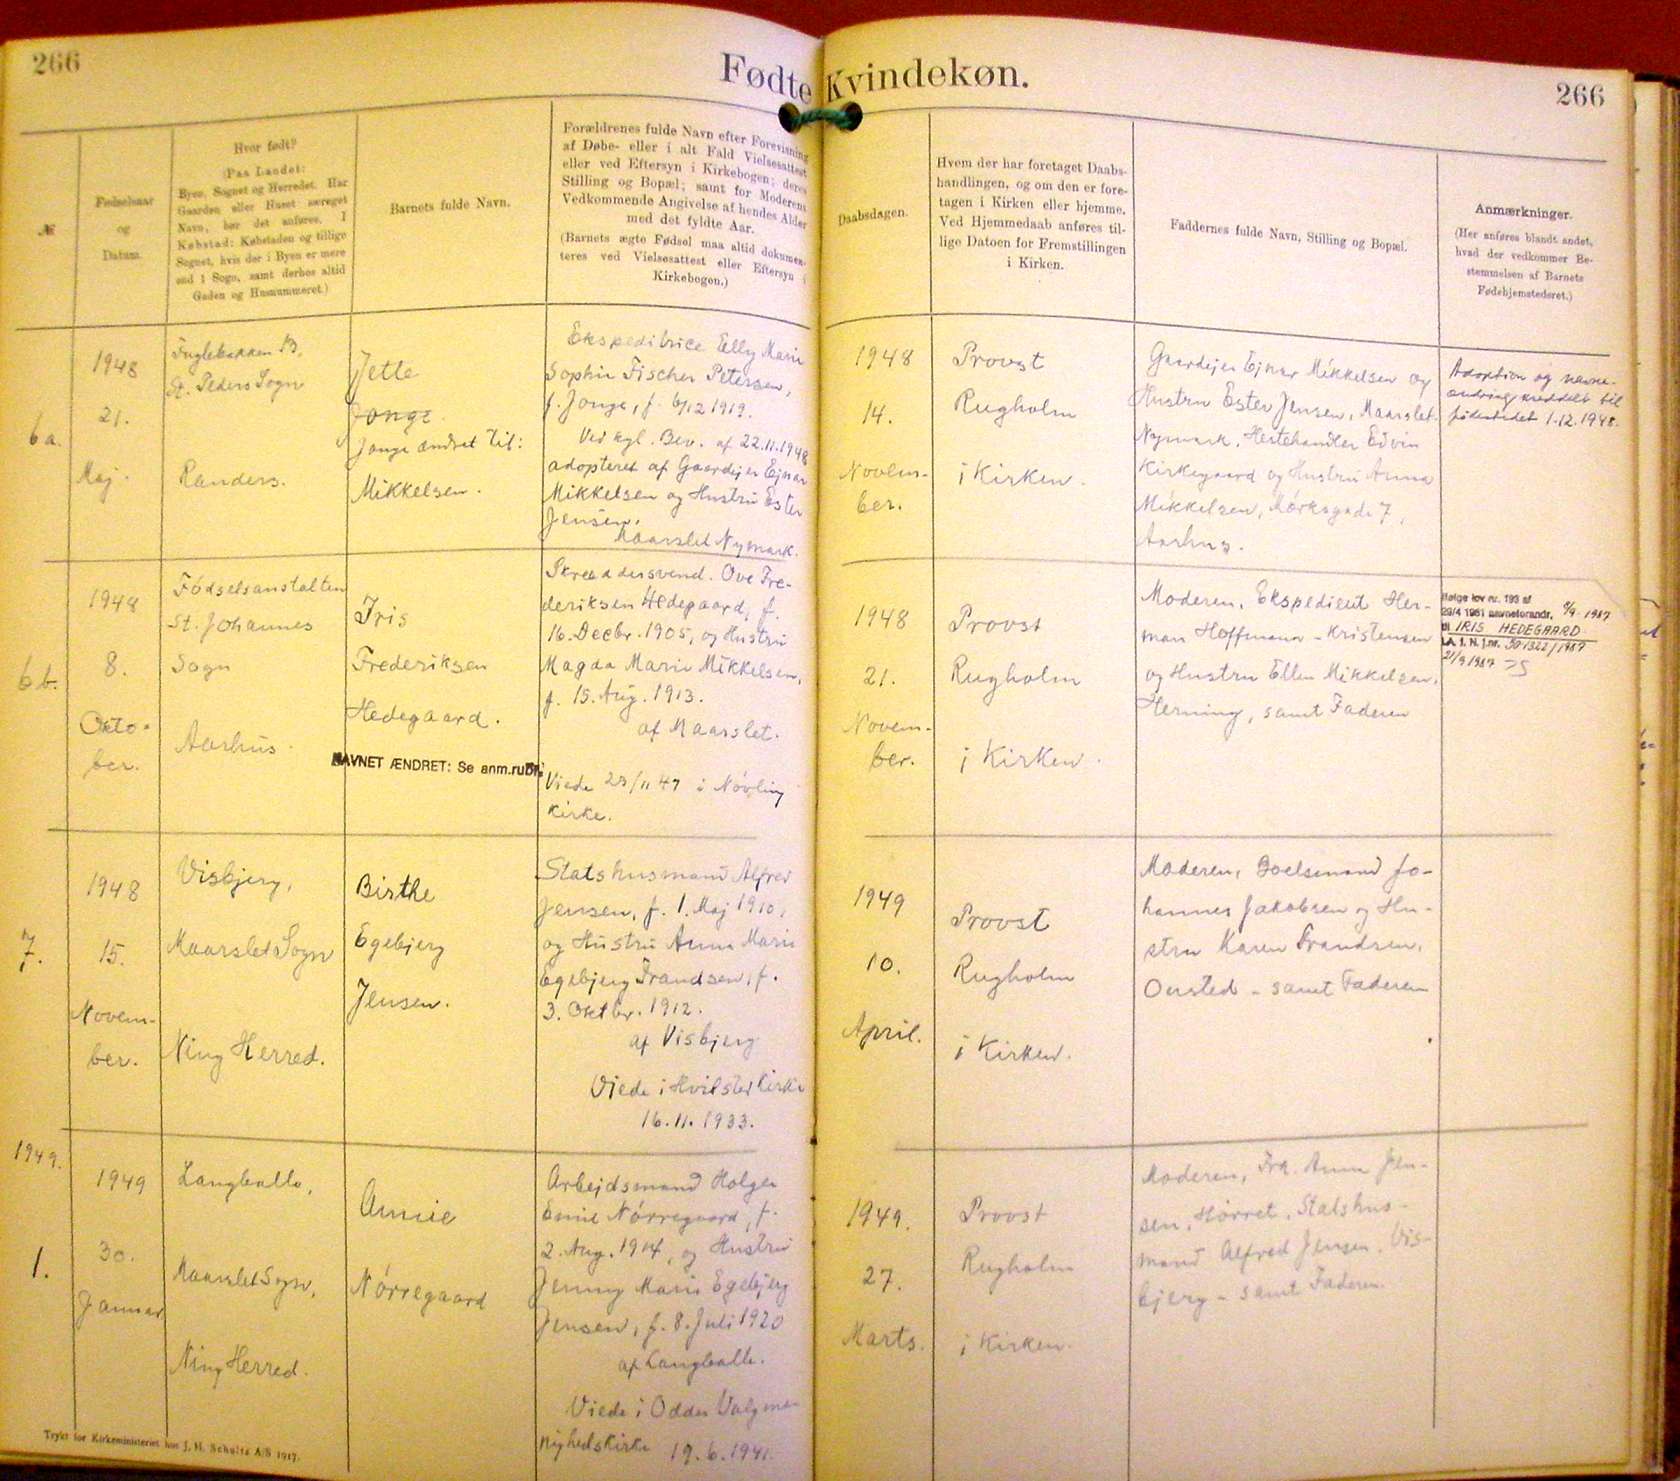 266
Fødte Kvindekøn.
266
№
Fødselsaar
og
Datum.
Hvor født?
(Paa Landet:
Byen, Sognet og Herredet. Har
Gaarden eller Huset særeget
Navn, bør det anføres. I
Købstad: Købstaden og tillige
Sognet, hvis der i Byen er mere
end 1 Sogn, samt derhos altid
Gaden og Husnummeret.)
Barnets fulde Navn.
Forældrenes fulde Navn efter Forevisning
af Døbe- eller i alt Fald Vielsesattest
eller ved Eftersyn i Kirkebogen; deres
Stilling og Bopæl; samt for Moderens
Vedkommende Angivelse af hendes Alder
med det fyldte Aar.
(Barnets ægte Fødsel maa altid dokumen-
teres ved Vielsesattest eller Eftersyn i
Kirkebogen.)
Daabsdagen.
Hvem der har foretaget Daabs-
handlingen, og om den er fore-
tagen i Kirken eller hjemme.
Ved Hjemmedaab anføres til-
lige Datoen for Fremstillingen
i Kirken.
Faddernes fulde Navn, Stilling og Bopæl.
Anmærkninger.
(Her anføres blandt andet,
hvad der vedkommer Be-
stemmelsen af Barnets
Fødehjemstederet.)
6a.
1948
21.
Maj.
Fuglebakken 13,
St. Peders Sogn
Randers.
Jette
Jonge
Jonge ændret til:
Mikkelsen.
Ekspeditrice Elly Marie
Sophie Fischer Petersen,
f. Jonge, f. 6/12 1919.
Ved kgl. Bev. af 22.11.1948
adopteret af Gaardejer Ejnar
Mikkelsen og Hustru Ester
Jensen,
Maarslet Nymark.
1948
14.
Novem-
ber.
Provst
Rugholm
i Kirken.
Gaardejer Ejnar Mikkelsen og
Hustru Ester Jensen, Maarslet
Nymark, Hestehandler Edvin
Kirkegaard og Hustru Anna
Mikkelsen, Mørksgade 7,
Aarhus.
Adoption og navne-
ændring meddelt til
fødestedet 1.12.1948.
6b.
1948
8.
Okto-
ber.
Fødselsanstalten
St. Johannes
Sogn
Aarhus.
Iris
Frederiksen
Hedegaard.
NAVNET ÆNDRET: Se anm.rubr.
Skræddersvend. Ove Fre-
deriksen Hedegaard, f.
16. Decbr. 1905, og Hustru
Magda Marie Mikkelsen,
f. 15. Aug. 1913.
af Maarslet.
Viede 23/11 47 i Nøvling
Kirke.
1948
21.
Novem-
ber.
Provst
Rugholm
i Kirken.
Moderen, Ekspedient Her-
man Hoffmann-Kristensen
og Hustru Ellen Mikkelsen,
Herning, samt Faderen
Ifølge lov nr. 193 af
29/4 1981 navneforandr. 9/9 1987
til IRIS HEDEGAARD
21/9 1987
7.
1948
15.
Novem-
ber.
Visbjerg,
Maarslet Sogn
Ning Herred.
Birthe
Egebjerg
Jensen.
Statshusmand Alfred
Jensen, f. 1. Maj 1910,
og Hustru Anna Marie
Egebjerg Frandsen, f.
3. Oktbr. 1912.
af Visbjerg
Viede i Hvilsted Kirke
16.11.1933.
1949
10.
April.
Provst
Rugholm
i Kirken.
Moderen, Boelsmand Jo-
hannes Jakobsen og Hu-
stru Karen Frandsen,
Onsted - samt Faderen
1949.
1.
1949
30.
Januar
Langballe,
Maarslet Sogn,
Ning Herred.
Annie
Nørregaard
Arbejdsmand Holger
Emil Nørregaard, f.
2. Aug. 1914, og Hustru
Jenny Marie Egebjerg
Jensen, f. 8. Juli 1920
af Langballe.
Viede i Odder Valgme-
nighedskirke 19.6.1941.
1949.
27.
Marts.
Provst
Rugholm
i Kirken.
Moderen, Frk. Anna Jen-
sen, Hørret, Statshus-
mand Alfred Jensen, Vis-
bjerg - samt Faderen.
Trykt for Kirkeministeriet hos J. H. Schultz A/S 1917.